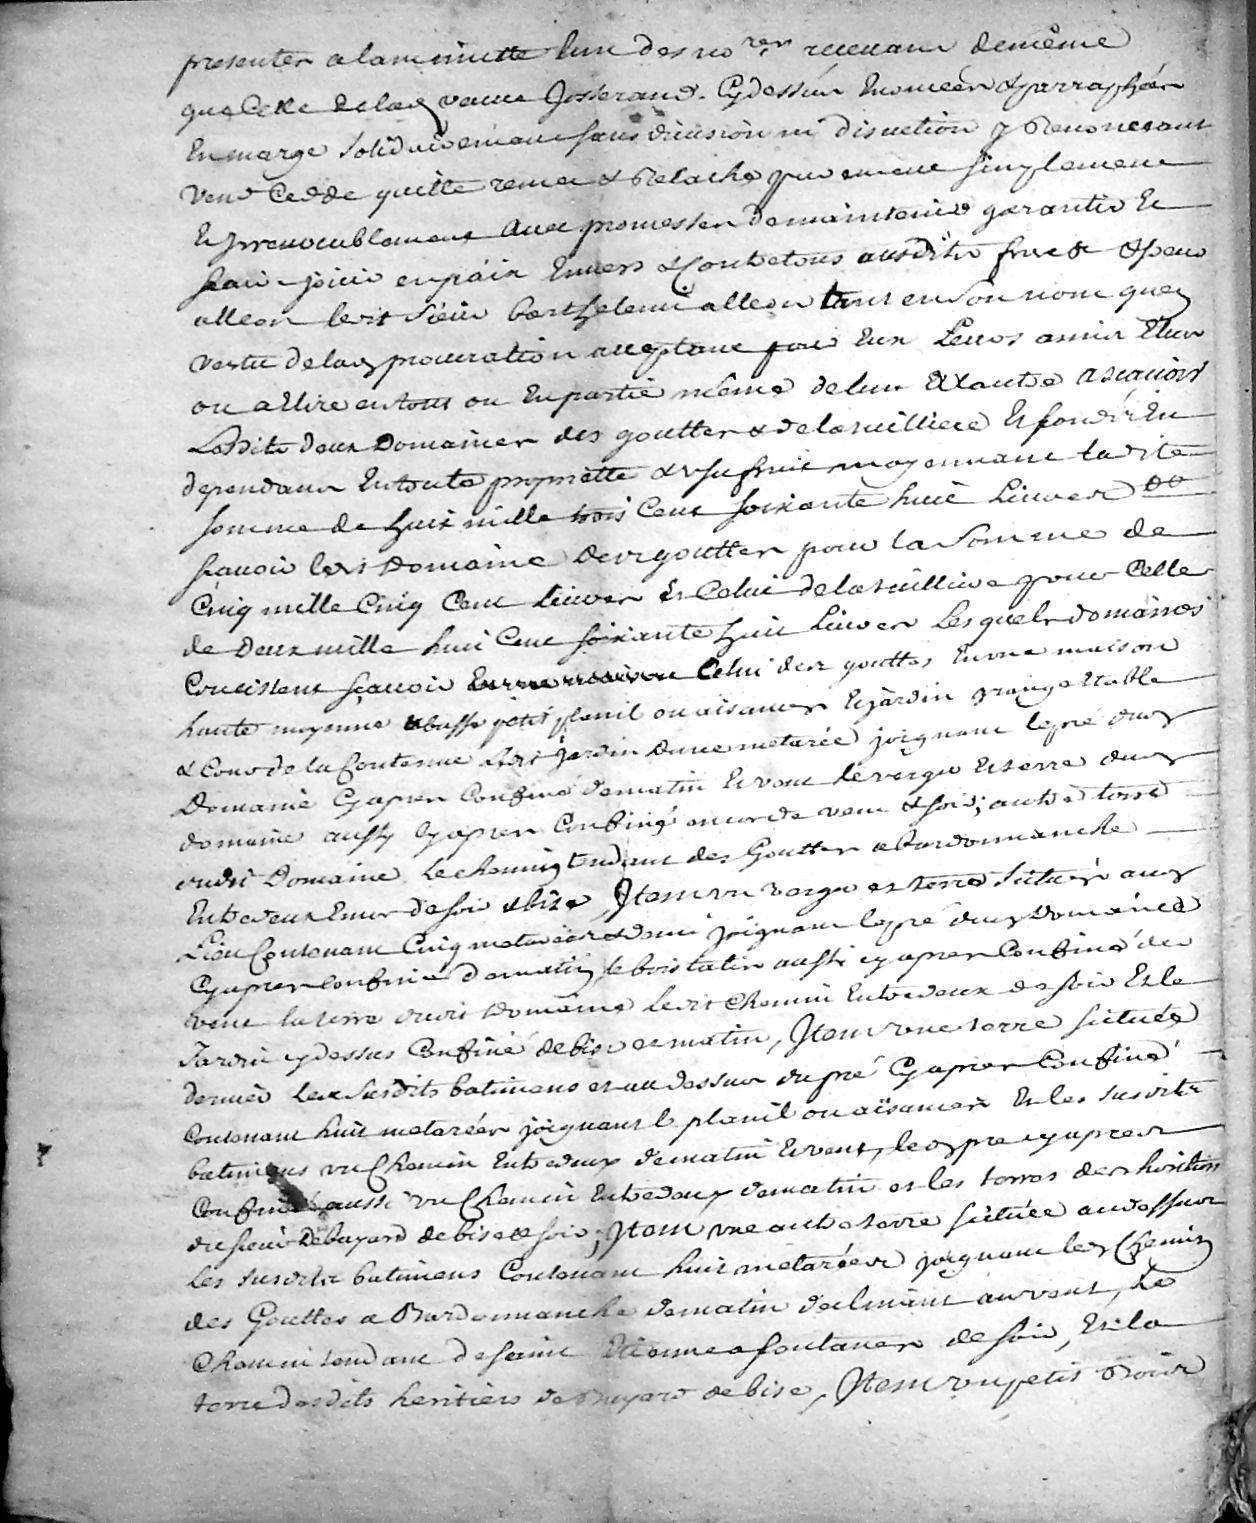 presenter a la minutte l'un des no.res recevant de même
que celle de lad veuve Josserand. Cydessus enoncées & parraphées
en marge solidairement sans division ni discution y renonceant
vend cedde quitte remet & relache purement simplement
et jrrevocablement avec promesses de maintenir garantir et
faire joüir en paix envers & contre tous ausdits frere &
alleon ledit sieur barthelemi alleon tant en son nom quen
vertu de lad procuration acceptant pour eux leurs amis elus
ou a elire en tout ou en partie même de l'un a l'autre a scavoir
Lesdits deux Domaines des gouttes & de la et fonds en
dependans en toute proprieté & usufruit moyennant ladite
somme de huit mille trois cent soixante huit Livres
scavoir led Domaine des goutter pour la Somme de
Cinq mille Cinq Cent Livres et Celui de la pour Celle
de Deux mille huit Cent soixante huit Livres Lesquels domaines
Concistent sçavoir Celui des gouttes en une maison
haute moyenne & basse petit plenil ou aisances et jardin grange etable
& Cour de la Contenue led jardin d'une metarée joignant le pré dud
Domaine Cyapres Confiné de matin et vent le verger et terre dud
domaine aussy Cyapres Confiné encor de vent & soir; autre terre
dudit Domaine le chemin tendant des Goutter a Bardonnanche
entredeux encor de soir & bize, Jtem un verger et terre situés aud
Lieu Contenant Cinq metarées & demi joignant le pré dud Domaine
Cyapres confiné de matin, le bois taillis aussi cyapres Confiné de
vent la terre dudit Domaine ledit Chemin entredeux de soir et le
Jardin cydessus Confiné de bise et matin, Jtem une terre située
derrier les susdits batimens et au dessus du pré Cyapres Confiné
Contenant huit metarées joignant le planil ou aisances et les susdits
batimens un Chemin entredeux de matin et vent, led pre cyapres
Confiné aussi un Chemin entredeux de matin et les terres des heritiers
du sieur Debayard de bise & soir; Jtem une autre terre située au dessus
les susdits batimens Contenant huit metarées joignant led Chemin
des Gouttes a Bardonnanche de matin declinant au vent, Le
Chemin tendant de saint Etienne a fontanes de soir, et la
terre desdits heritiers de Bayard de bise, Jtem un petit